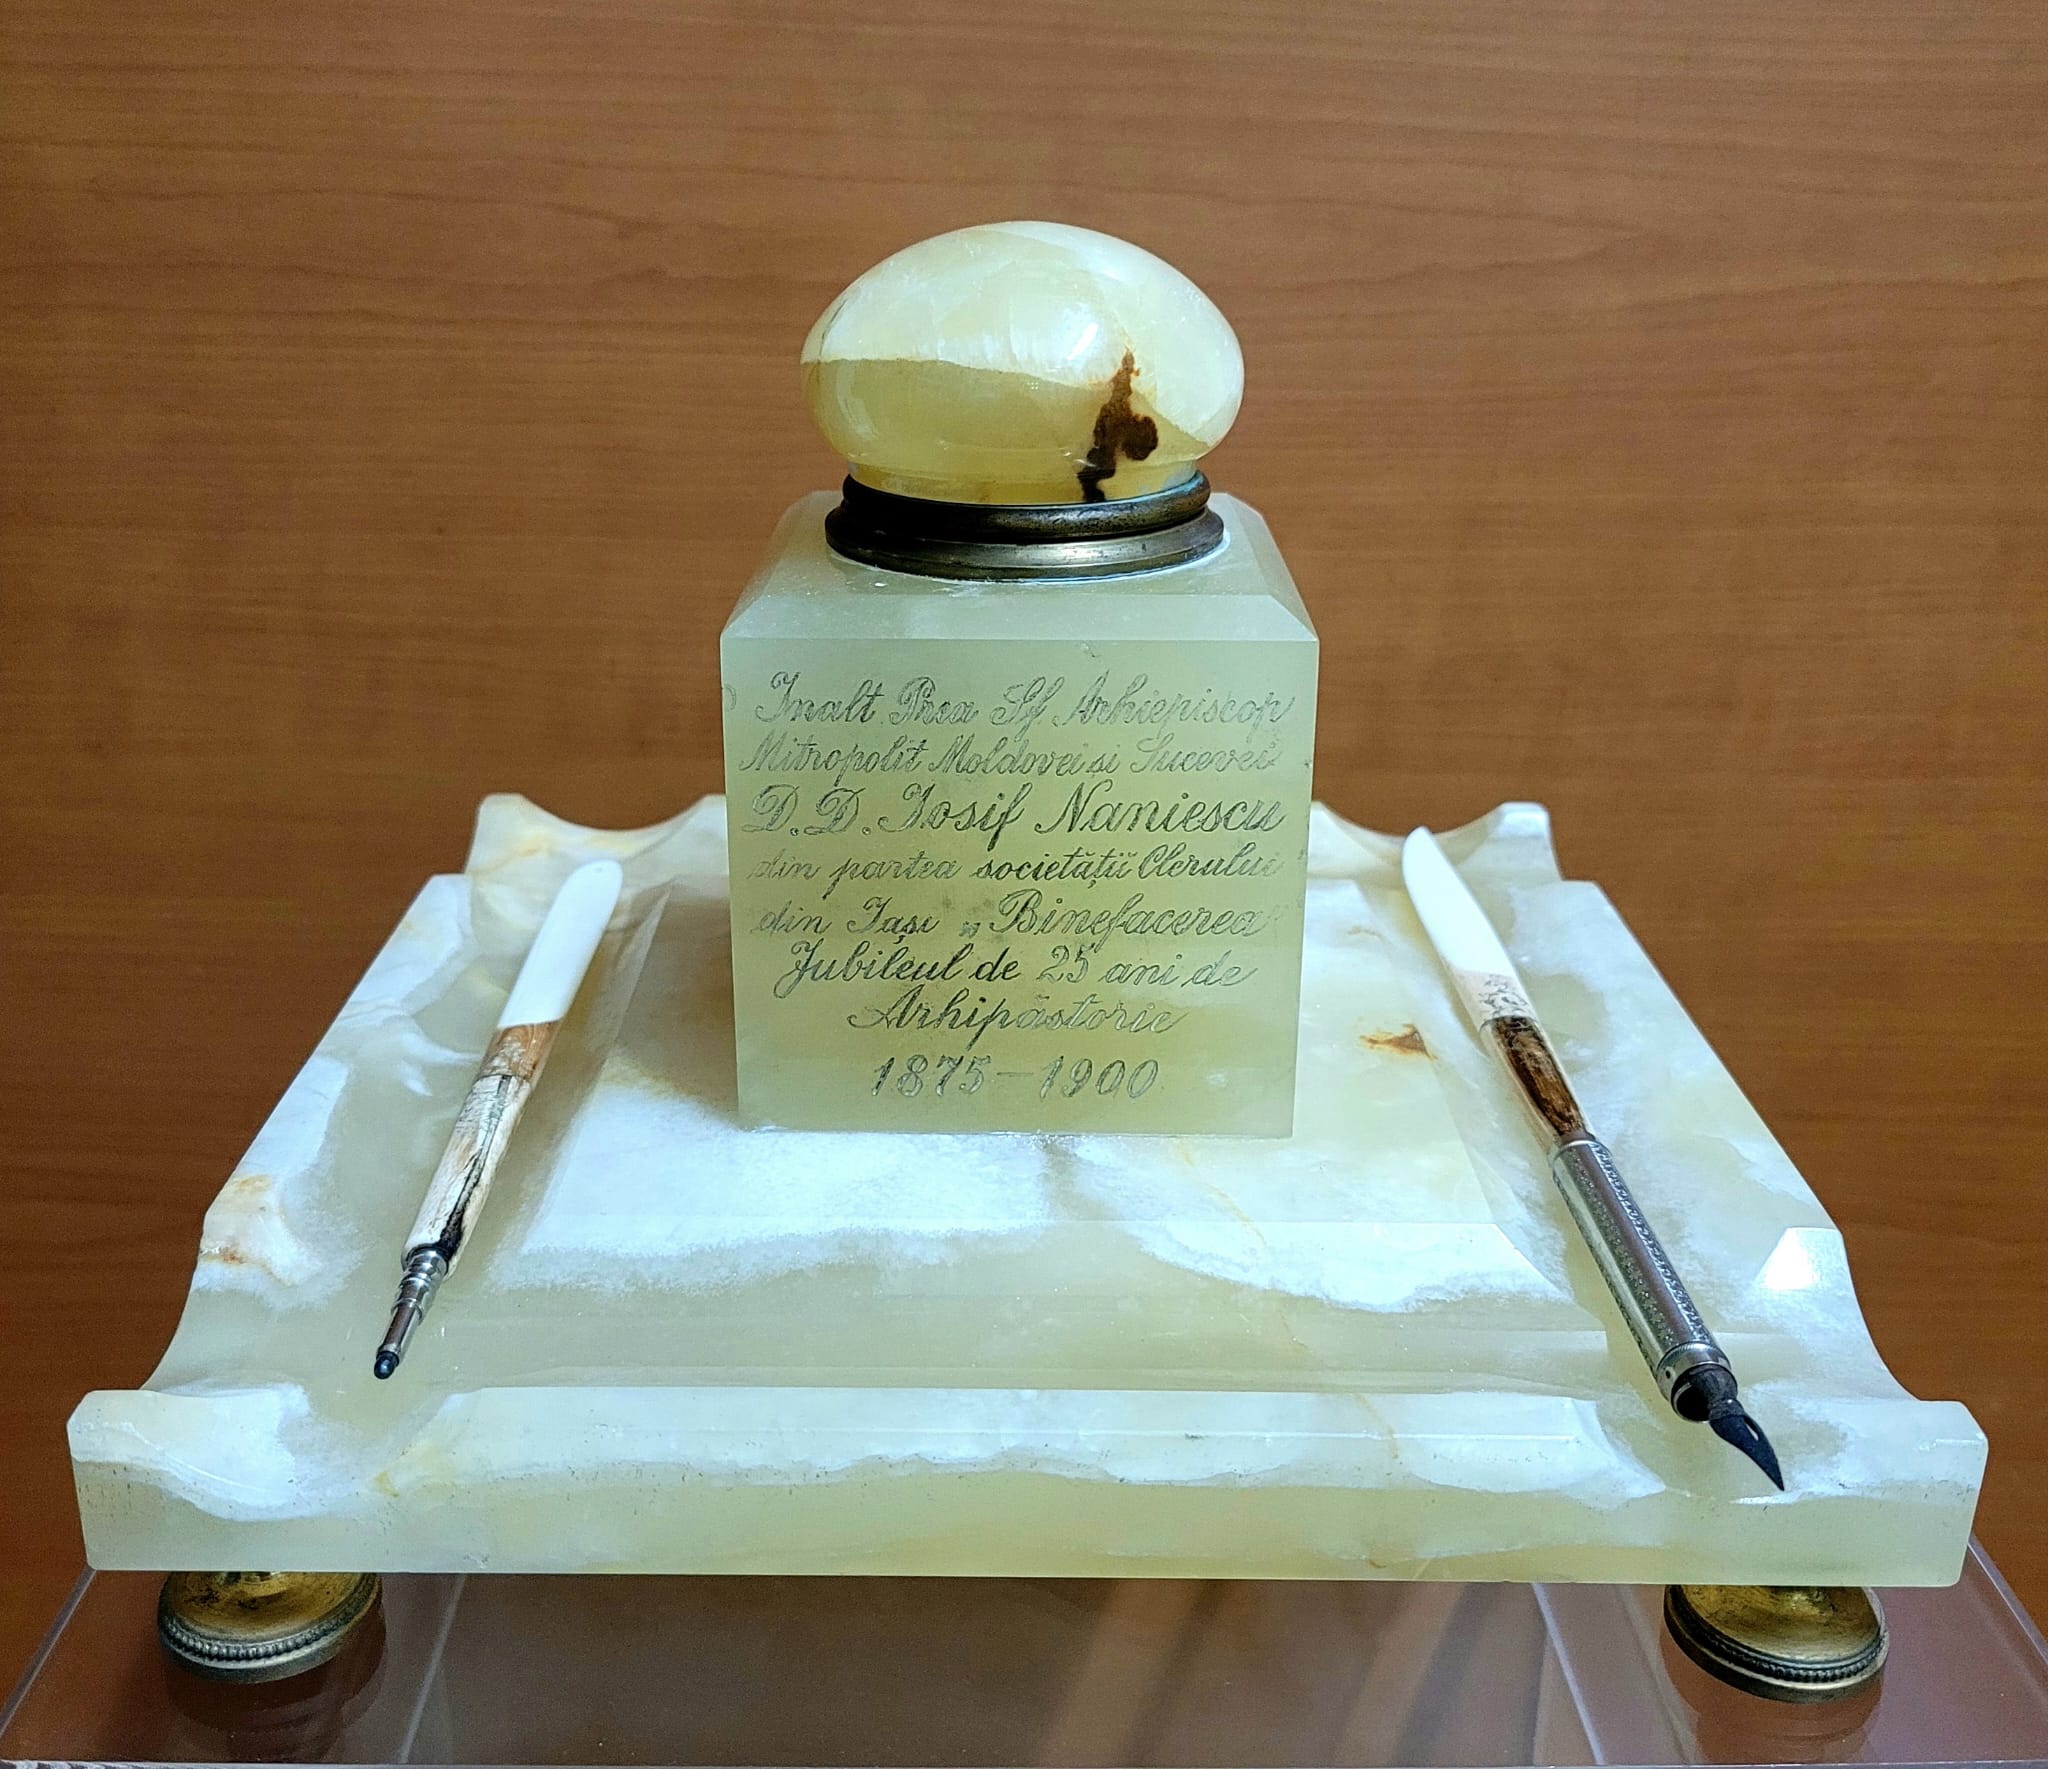 Inalt Prea Sf. Arhiepiscop
Mitropolit Moldovei si Sucevei
D. D. Iosif Naniescu
din partea societăţii Clerului
din Iaşi „Binefacerea”
Jubileul de 25 ani de
Arhipăstorie
1875–1900